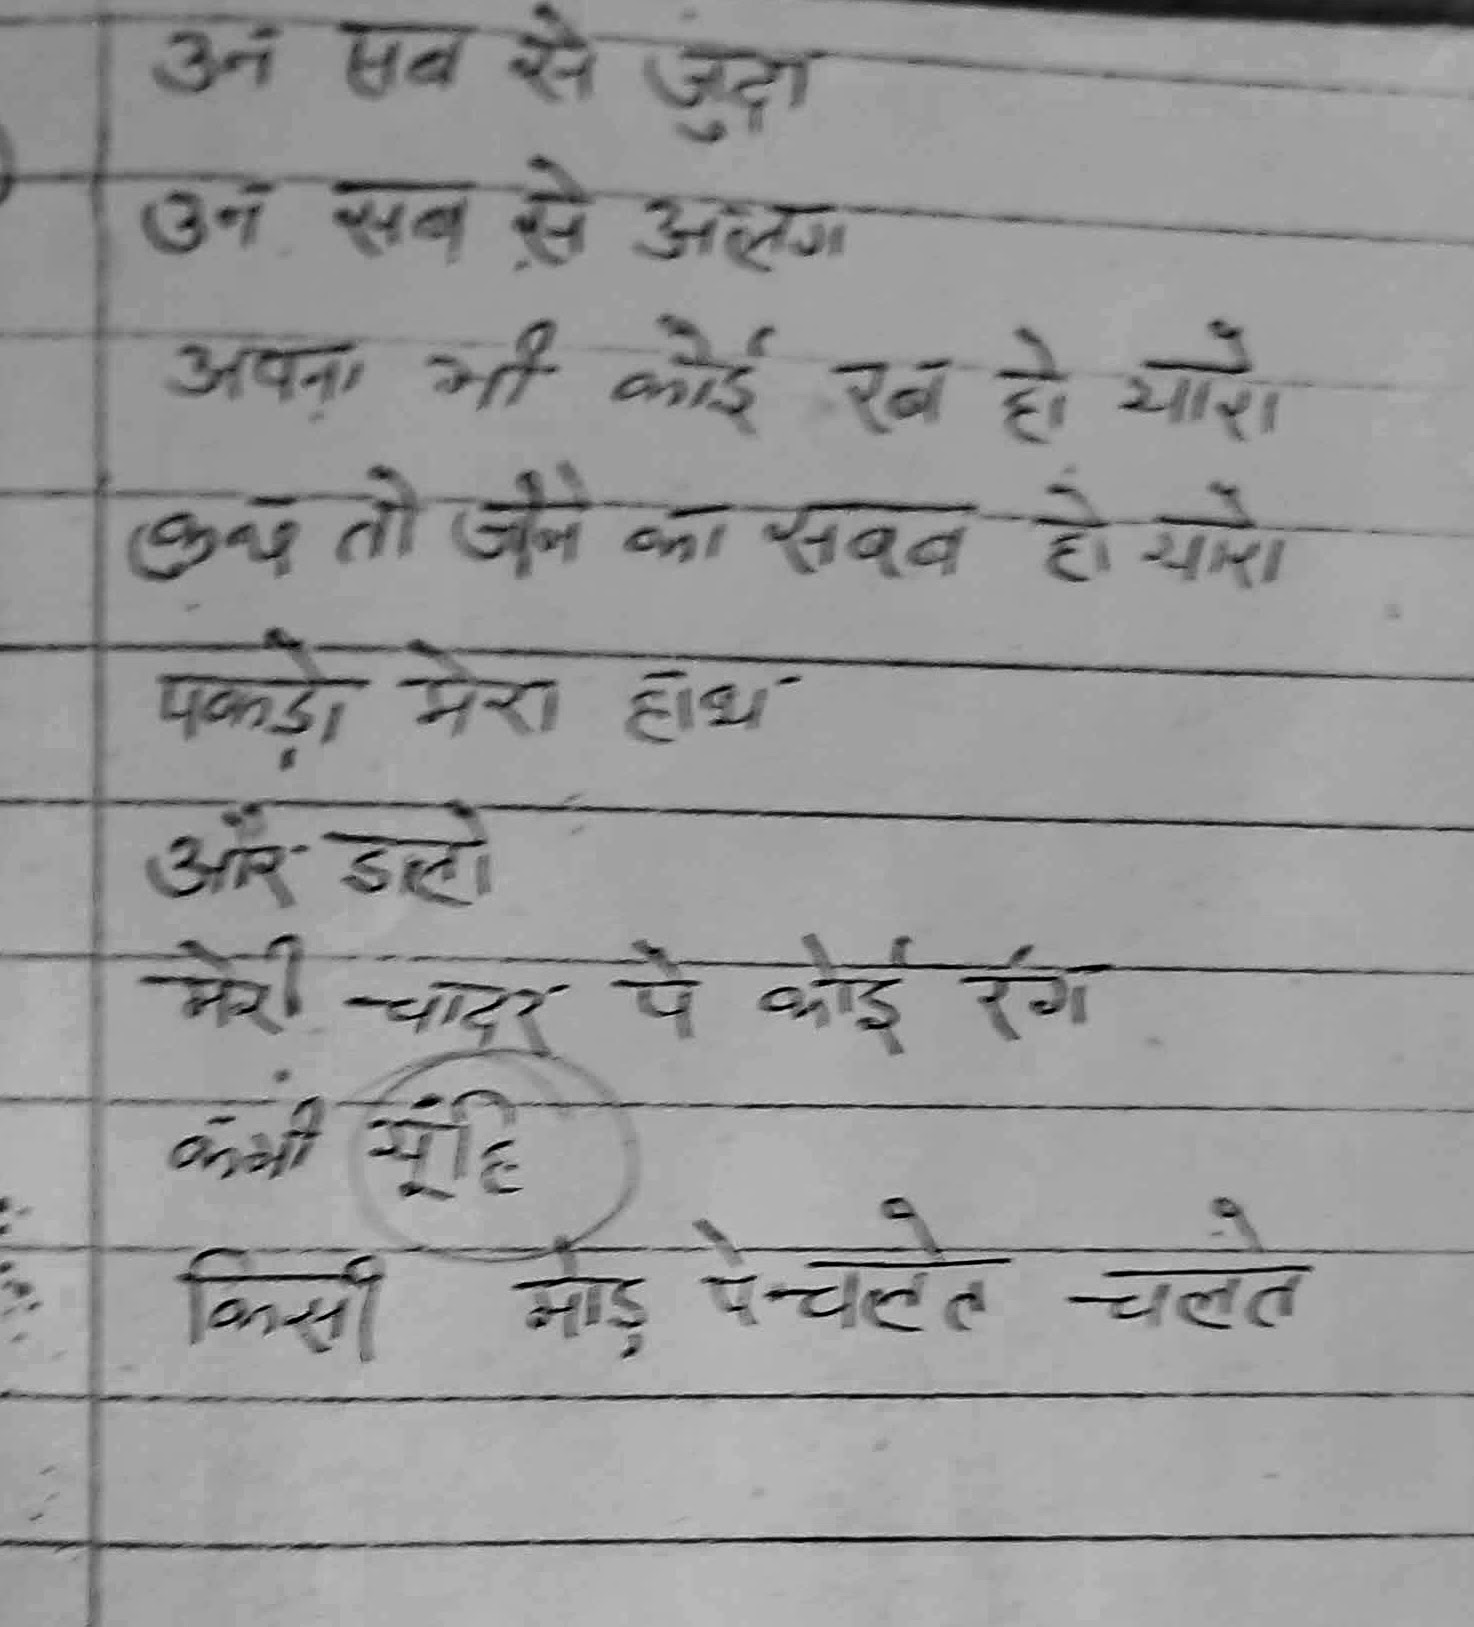 उन सब से जुदा
उन सब से अलग
अपना भी कोई रब हो यारो
कुछ तो जीने का सबब हो यारो
पकड़ो मेरा हाथ
और डालो
मेरी चादर पे कोई रंग
कभी यूंहि
किसी मोड़ पे चलते चलते